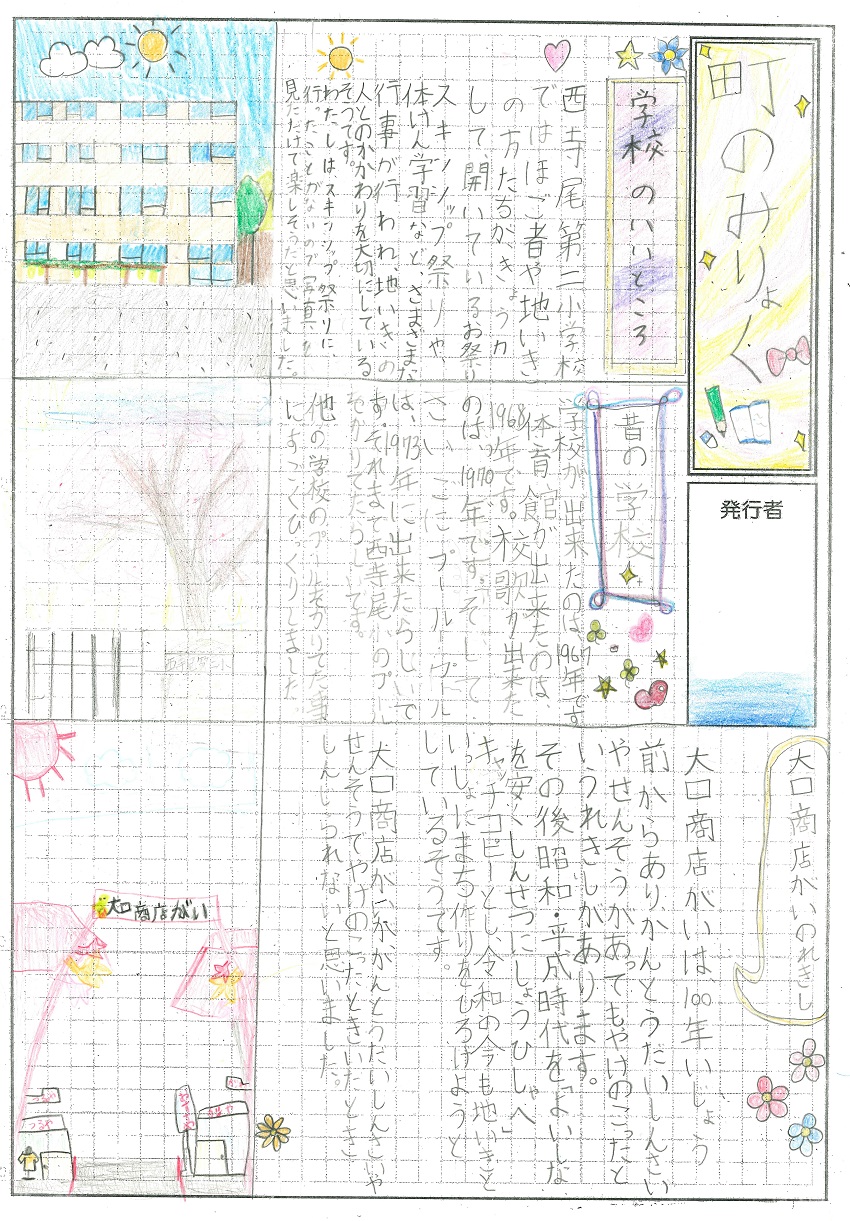 町のみりょく
発行者
学校のいいところ
西寺尾第二小学校
ではほご者や地いき
の方たちがきょうカ
して、開いているお祭り
スキンシップ祭りや、
体けん学習など、さまざまな
行事が行われ、地いきの
人とのかかわりを大切にしている
そうです。
わたしはスキンシップ祭りに、
行ったことがないので写真を
見ただけで楽しそうだと思いました。
昔の学校
学校が出来たのは1967年です
体育館が出来たのは、
1968年です。校歌が出来た
のは、1970年です。そして
さいごにプール
は、1973年に出来たらしいで
す。それまで西寺尾小のプール
をかりてたらしいです。
他の学校のプールをかりてた事
にすごくびっくりしました
大口商店がいのれきし
大口商店がいは、100年いじょう
前からあり、かんとうだいしんさい
やせんそうがあってもやけのこったと
いうれきしがあります。
その後昭和・平成時代を「よいしな
を安くしんせつにしょうひしゃへ」
キャッチコピーとし、令和の今も地いきと
いっしょにまち作りをひろげようと
しているそうです。
大口商店がいが、かんとうだいしんさいや
せんそうでやけのこったときいたとき
しんじられないと思いました。
大口商店がい